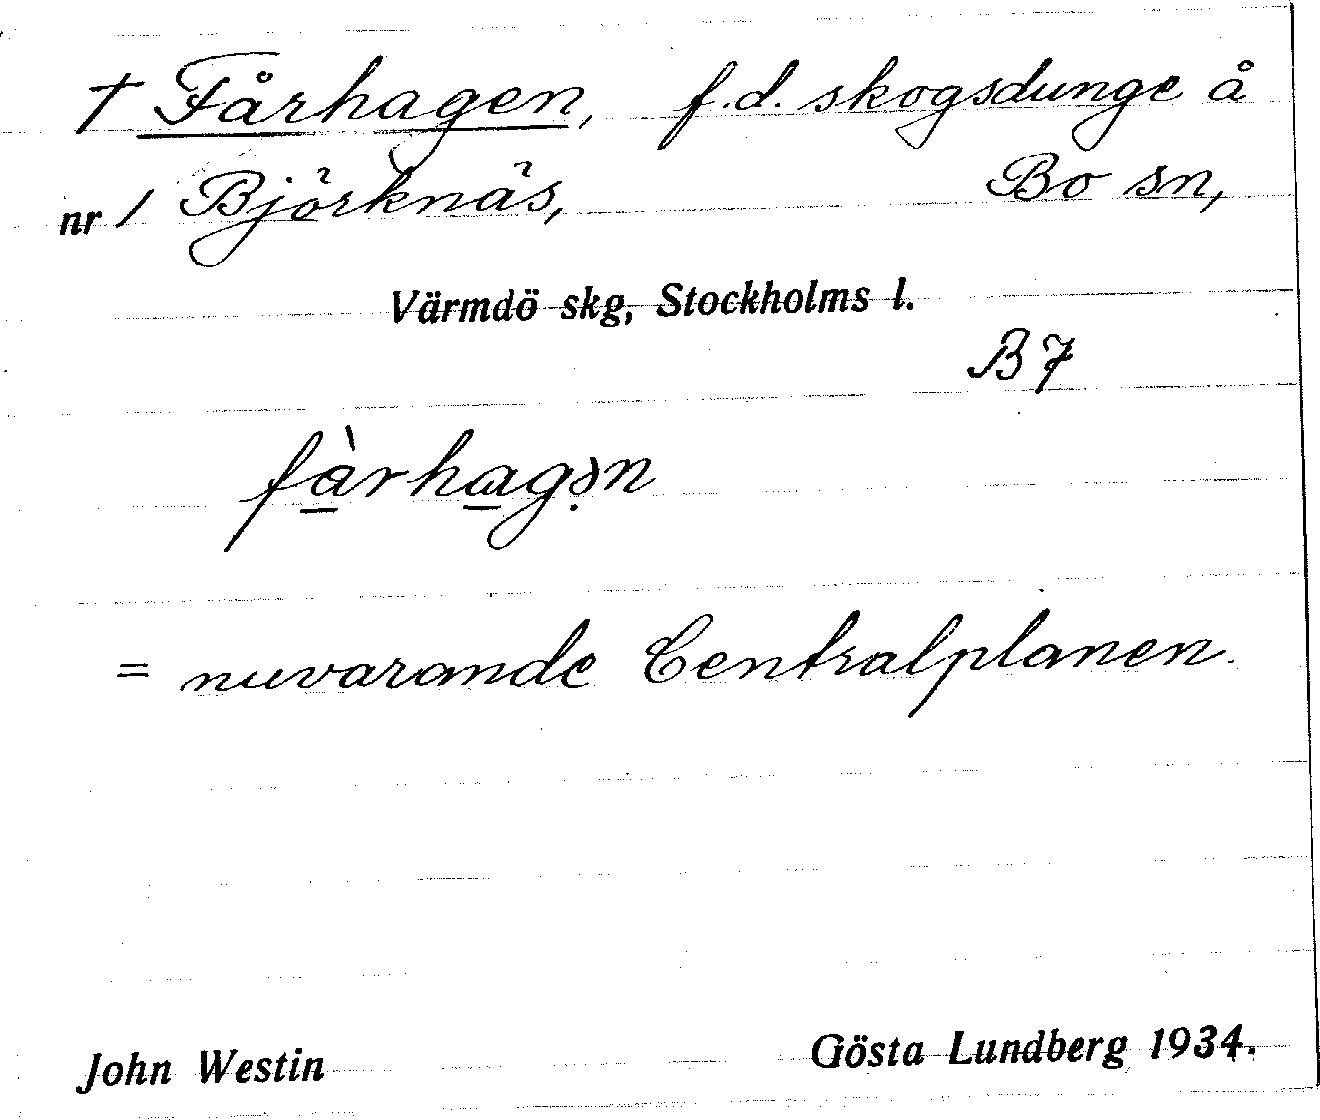 † Fårhagen, f.d. skogsdunge å
nr 1 Björknäs, Bo sn,
Värmdö skg, Stockholms l.
B7
fàrhagən
= nuvarande Centralplanen.
John Westin Gösta Lundberg 1934.